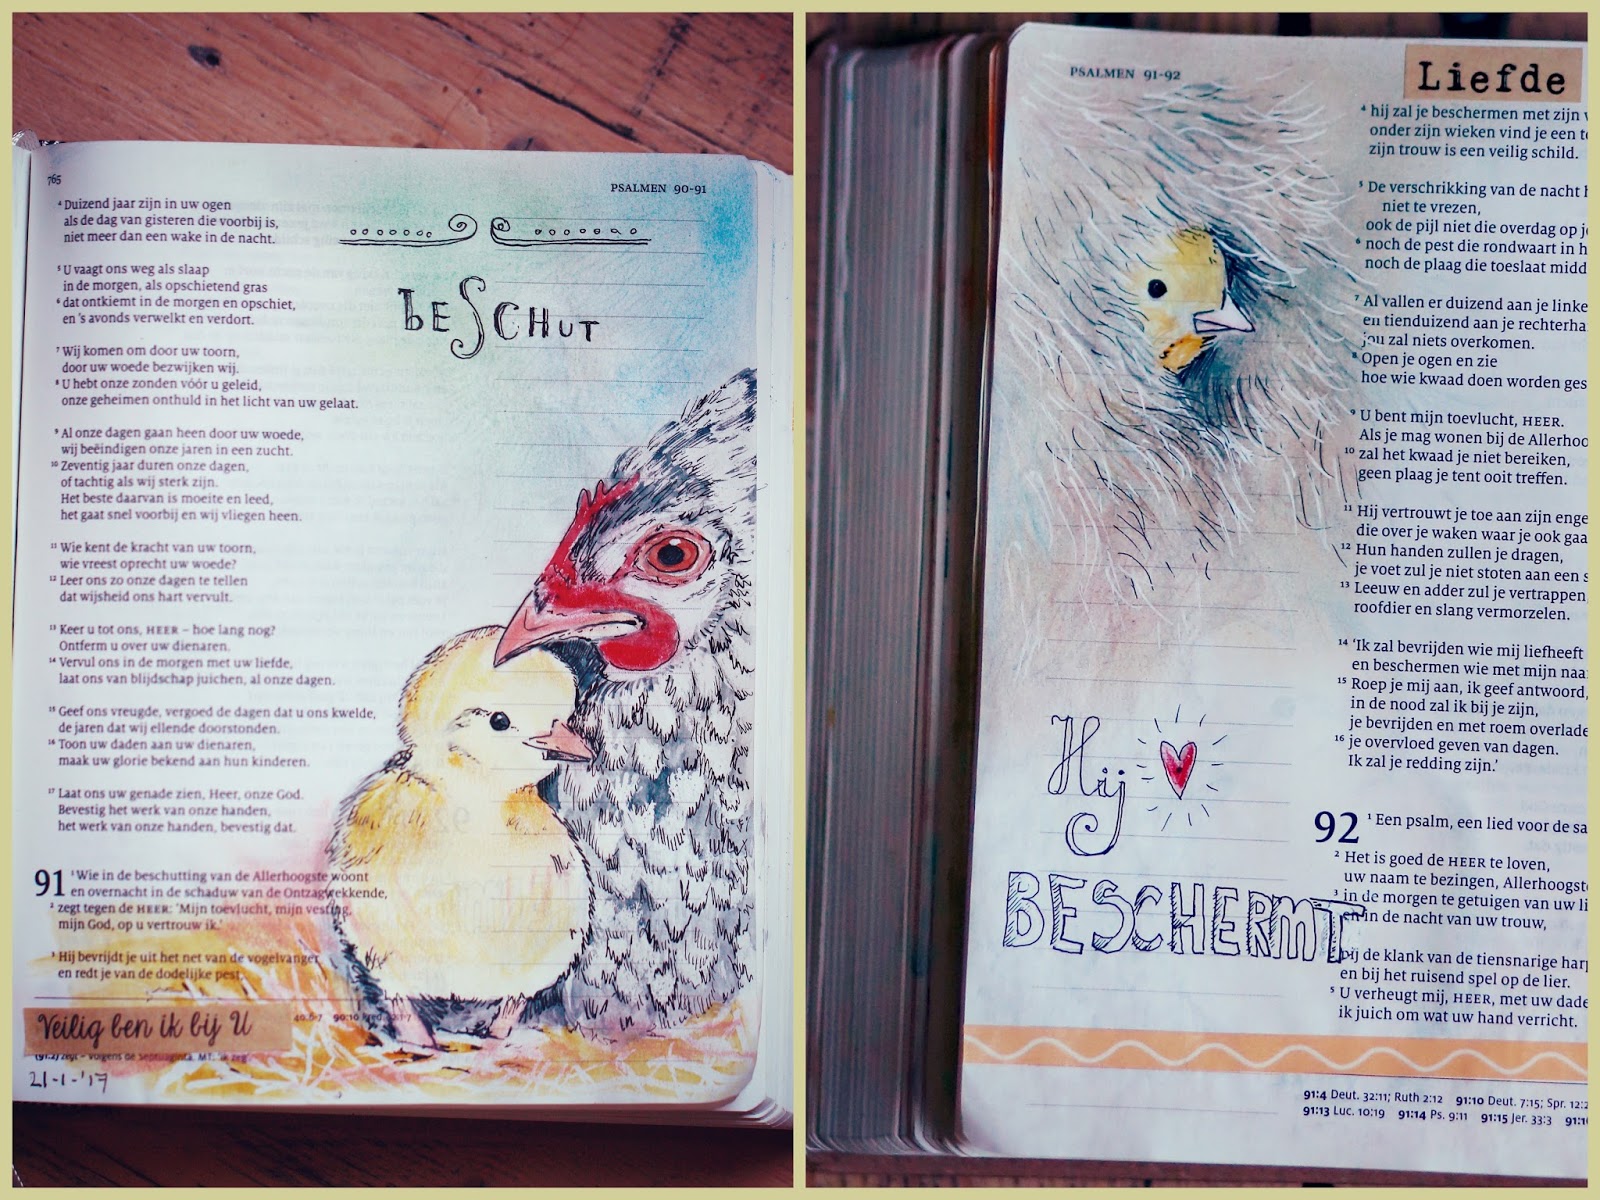 765
PSALMEN 90-91
beSCHUT
⁴ Duizend jaar zijn in uw ogen
als de dag van gisteren die voorbij is,
niet meer dan een wake in de nacht.
⁵ U vaagt ons weg als slaap
in de morgen, als opschietend gras
⁶ dat ontkiemt in de morgen en opschiet,
en 's avonds verwelkt en verdort.
⁷ Wij komen om door uw toorn,
door uw woede bezwijken wij.
⁸ U hebt onze zonden vóór u geleid,
onze geheimen onthuld in het licht van uw gelaat.
⁹ Al onze dagen gaan heen door uw woede,
wij beëindigen onze jaren in een zucht.
¹⁰ Zeventig jaar duren onze dagen,
of tachtig als wij sterk zijn.
Het beste daarvan is moeite en leed,
het gaat snel voorbij en wij vliegen heen.
¹¹ Wie kent de kracht van uw toorn,
wie vreest oprecht uw woede?
¹² Leer ons zo onze dagen te tellen
dat wijsheid ons hart vervult.
¹³ Keer u tot ons, HEER – hoe lang nog?
Ontferm u over uw dienaren.
¹⁴ Vervul ons in de morgen met uw liefde,
laat ons van blijdschap juichen, al onze dagen.
¹⁵ Geef ons vreugde, vergoed de dagen dat u ons kwelde,
de jaren dat wij ellende doorstonden.
¹⁶ Toon uw daden aan uw dienaren,
maak uw glorie bekend aan hun kinderen.
¹⁷ Laat ons uw genade zien, Heer, onze God.
Bevestig het werk van onze handen,
het werk van onze handen, bevestig dat.
91 ¹ Wie in de beschutting van de Allerhoogste woont
en overnacht in de schaduw van de Ontzagwekkende,
² zegt tegen de HEER: 'Mijn toevlucht, mijn vesting,
mijn God, op u vertrouw ik.'
³ Hij bevrijdt je uit het net van de vogelvanger
en redt je van de dodelijke pest,
Veilig ben ik bij U
90:10
(91:2) zegt – Volgens de Septuaginta. MT: 'ik zeg'.
21-1-'17
PSALMEN 91-92
Liefde
⁴ hij zal je beschermen met zijn
onder zijn wieken vind je een
zijn trouw is een veilig schild.
⁵ De verschrikking van de nacht
niet te vrezen,
ook de pijl niet die overdag op
⁶ noch de pest die rondwaart in
noch de plaag die toeslaat
⁷ Al vallen er duizend aan je
en tienduizend aan je
jou zal niets overkomen.
⁸ Open je ogen en zie
hoe wie kwaad doen worden
⁹ U bent mijn toevlucht, HEER.
Als je mag wonen bij de
¹⁰ zal het kwaad je niet bereiken,
geen plaag je tent ooit treffen.
¹¹ Hij vertrouwt je toe aan zijn
die over je waken waar je ook
¹² Hun handen zullen je dragen,
je voet zul je niet stoten aan een
¹³ Leeuw en adder zul je vertrappen,
roofdier en slang vermorzelen.
¹⁴ 'Ik zal bevrijden wie mij liefheeft
en beschermen wie met mijn
¹⁵ Roep je mij aan, ik geef antwoord,
in de nood zal ik bij je zijn,
je bevrijden en met roem
¹⁶ je overvloed geven van dagen.
Ik zal je redding zijn.'
Hij
BESCHERMT
92 ¹ Een psalm, een lied voor de
² Het is goed de HEER te loven,
uw naam te bezingen,
³ in de morgen te getuigen van uw
en in de nacht van uw trouw,
bij de klank van de tiensnarige
en bij het ruisend spel op de lier.
⁵ U verheugt mij, HEER, met uw
ik juich om wat uw hand verricht.
91:4 Deut. 32:11; Ruth 2:12 91:10 Deut. 7:15; Spr.
91:13 Luc. 10:19 91:14 Ps. 9:11 91:15 Jer. 33:3